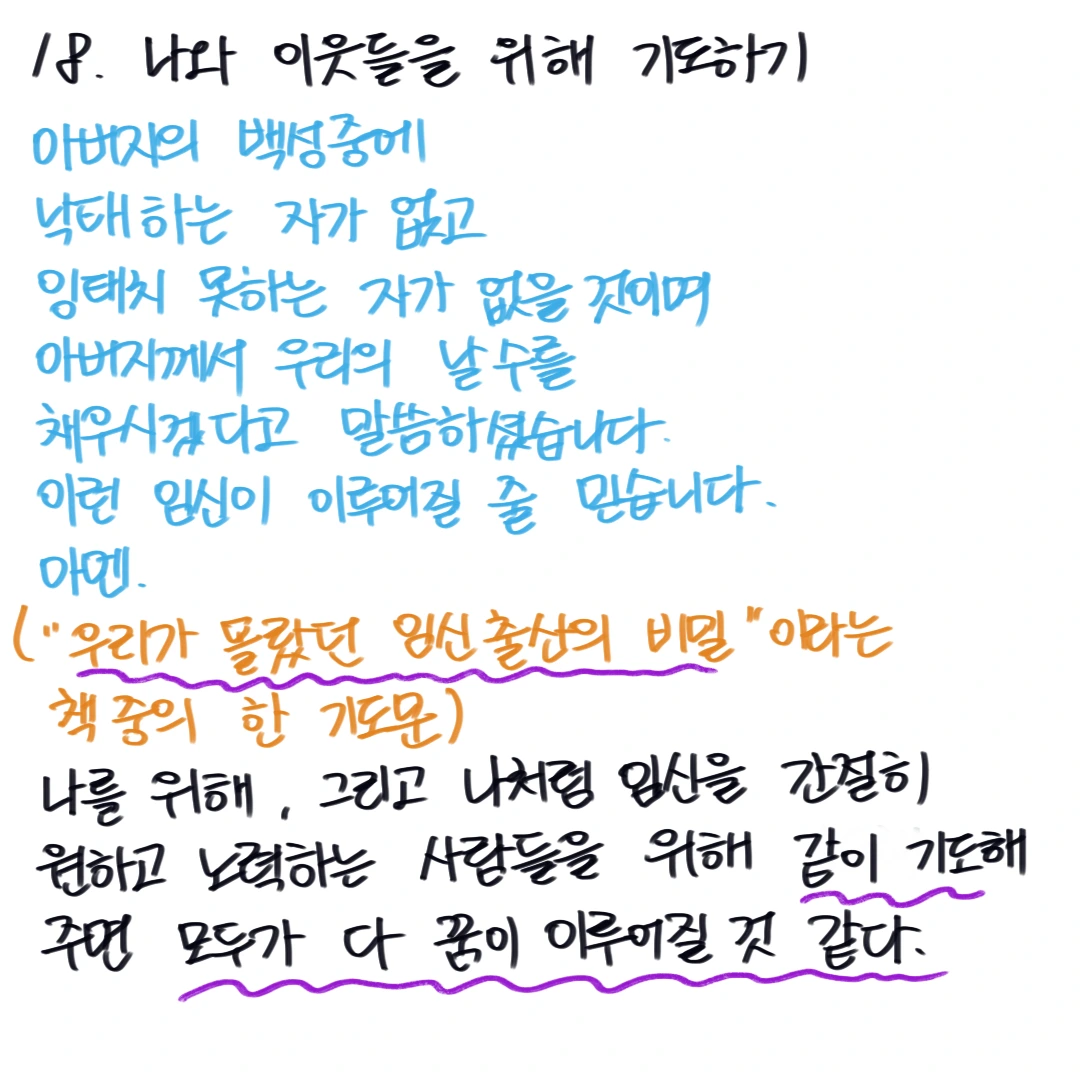 18. 나와 이웃들을 위해 기도하기
아버지의 백성중에
낙태하는 자가 없고
잉태치 못하는 자가 없을 것이며
아버지께서 우리의 날 수를
채우시겠다고 말씀하셨습니다.
이런 임신이 이루어질 줄 믿습니다.
아멘.
("우리가 몰랐던 임신출산의 비밀"이라는
책 중의 한 기도문)
나를 위해, 그리고 나처럼 임신을 간절히
원하고 노력하는 사람들을 위해 같이 기도해
주면 모두가 다 꿈이 이루어질 것 같다.